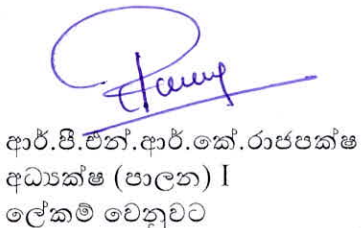 ආර්.පී.එන්.ආර්.කේ.රාජපක්ෂ
අධ්‍යක්ෂ (පාලන) I
ලේකම් වෙනුවට